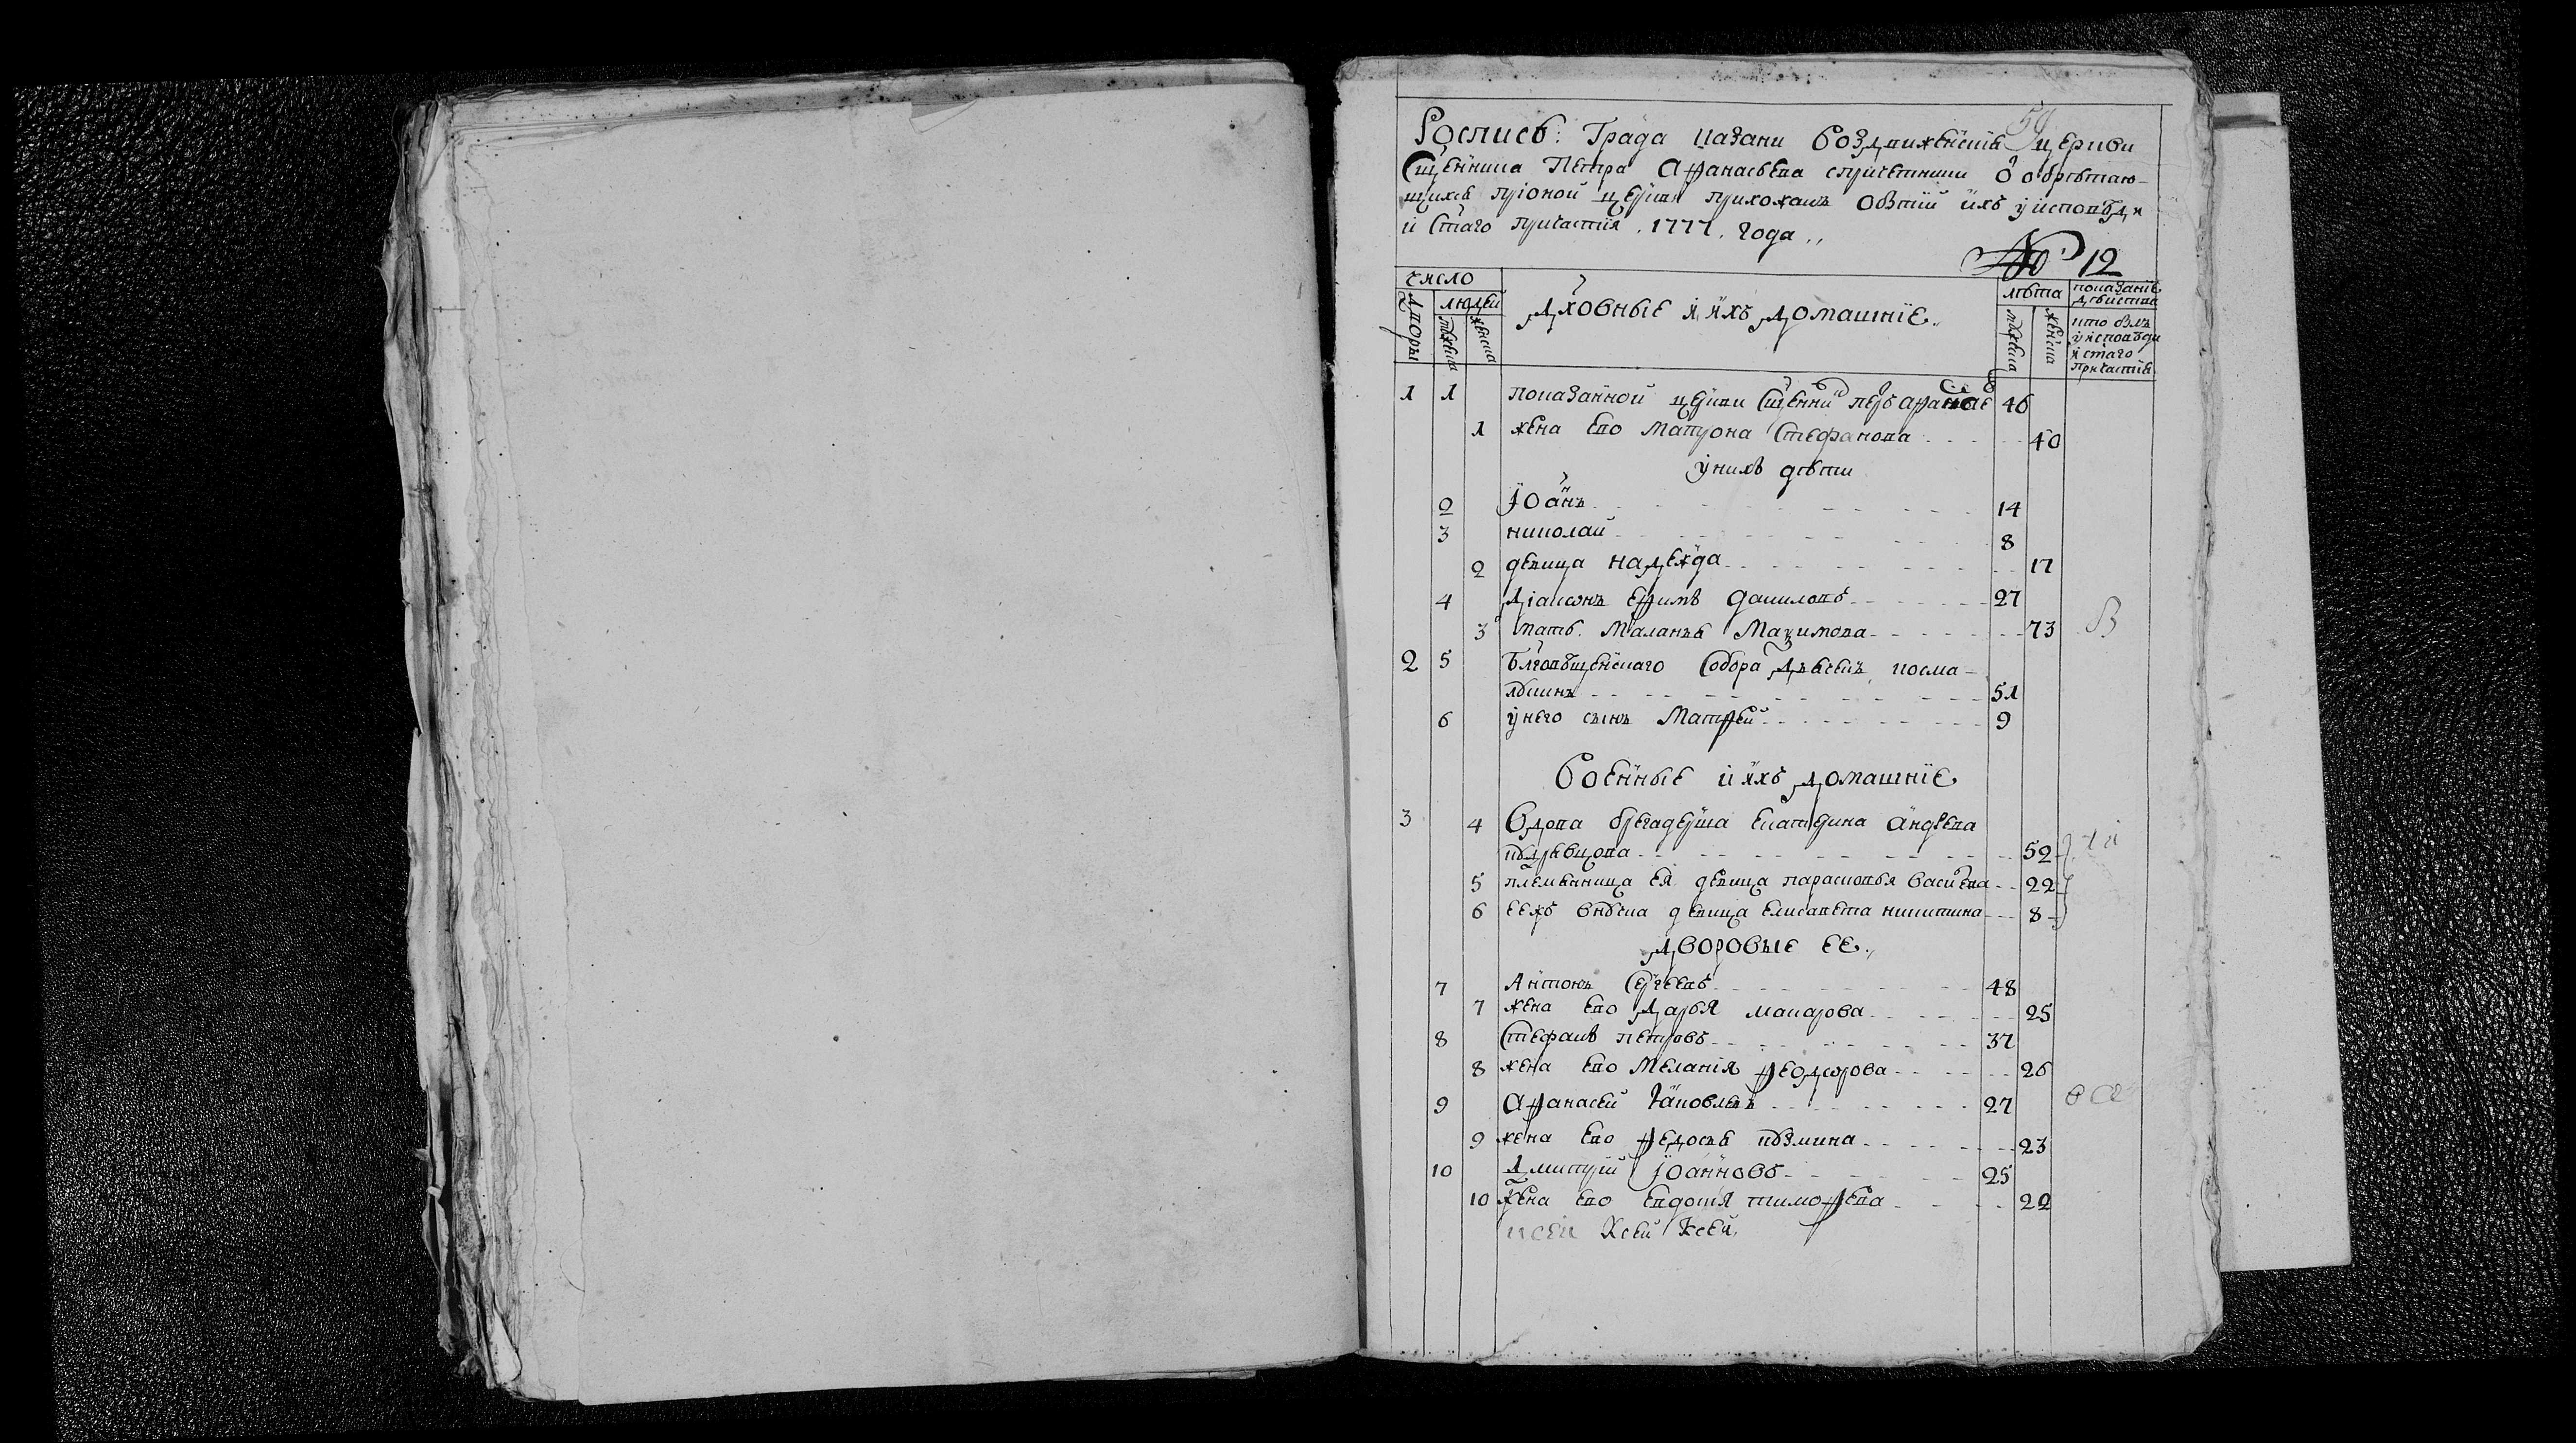 Роспись: Града казани воздвиженскїя церкви
Сщенника Петра Афанасьева спричетники ѡ обретаю-
щихся прионой церкви прихожанъ обытїи ихъ уисповѣди
и Стаго причастїя. 1777. года.,
№ 12
число
людей
дворы
мужеска
женска
Дховные и ихъ домашнїе.,
лѣта
мужеска
женска
показанїе
дѣйства
кто былъ
у исповѣди
и стаго
причастїя
1 1 показанной церкви Сщенникъ петръ афанасьевъ 46
1 жена ево Матрона Стефанова 40
у нихъ дѣти
2 Їоаннъ 14
3 николай 8
2 девица надежда 17
4 Дїаконъ Ефимъ даниловъ 27
3 мать Маланья Макимова 73
2 5 Блговѣщенскаго Собора Алексей косма-
51
6 у него сынъ Матфей 9
Военные и ихъ домашнїе
3 4 Вдова брегадерша Екатерина андреева
кудрявцова 52
5 племянница ея девица парасковья васильева 22
6 ееже внука девица елисавета никитина 8
дворовые ее.,
7 Антонъ Сергеевъ 48
7 жена ево Дарья макарова 25
8 Стефанъ петровъ 37
8 жена ево Меланїя феодорова 26
9 Афанасей Їаковлевъ 27
9 жена ево федосья кузмина 23
10 Дмитрїй Їоанновъ 25
10 жена ево евдотїя тимофеева 22